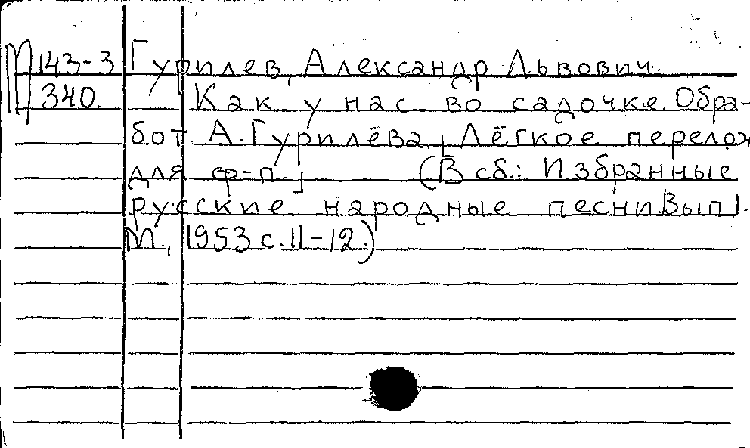 М 143-3 Гурилев, Александр Львович.
340. Как у нас во садочке. Обра-
бот. А. Гурилёва, Лёгкое перелож
для ф-п.] (В сб.: Избранные
русские народные песни Вып 1.
М, 1953 с. 11-12.)